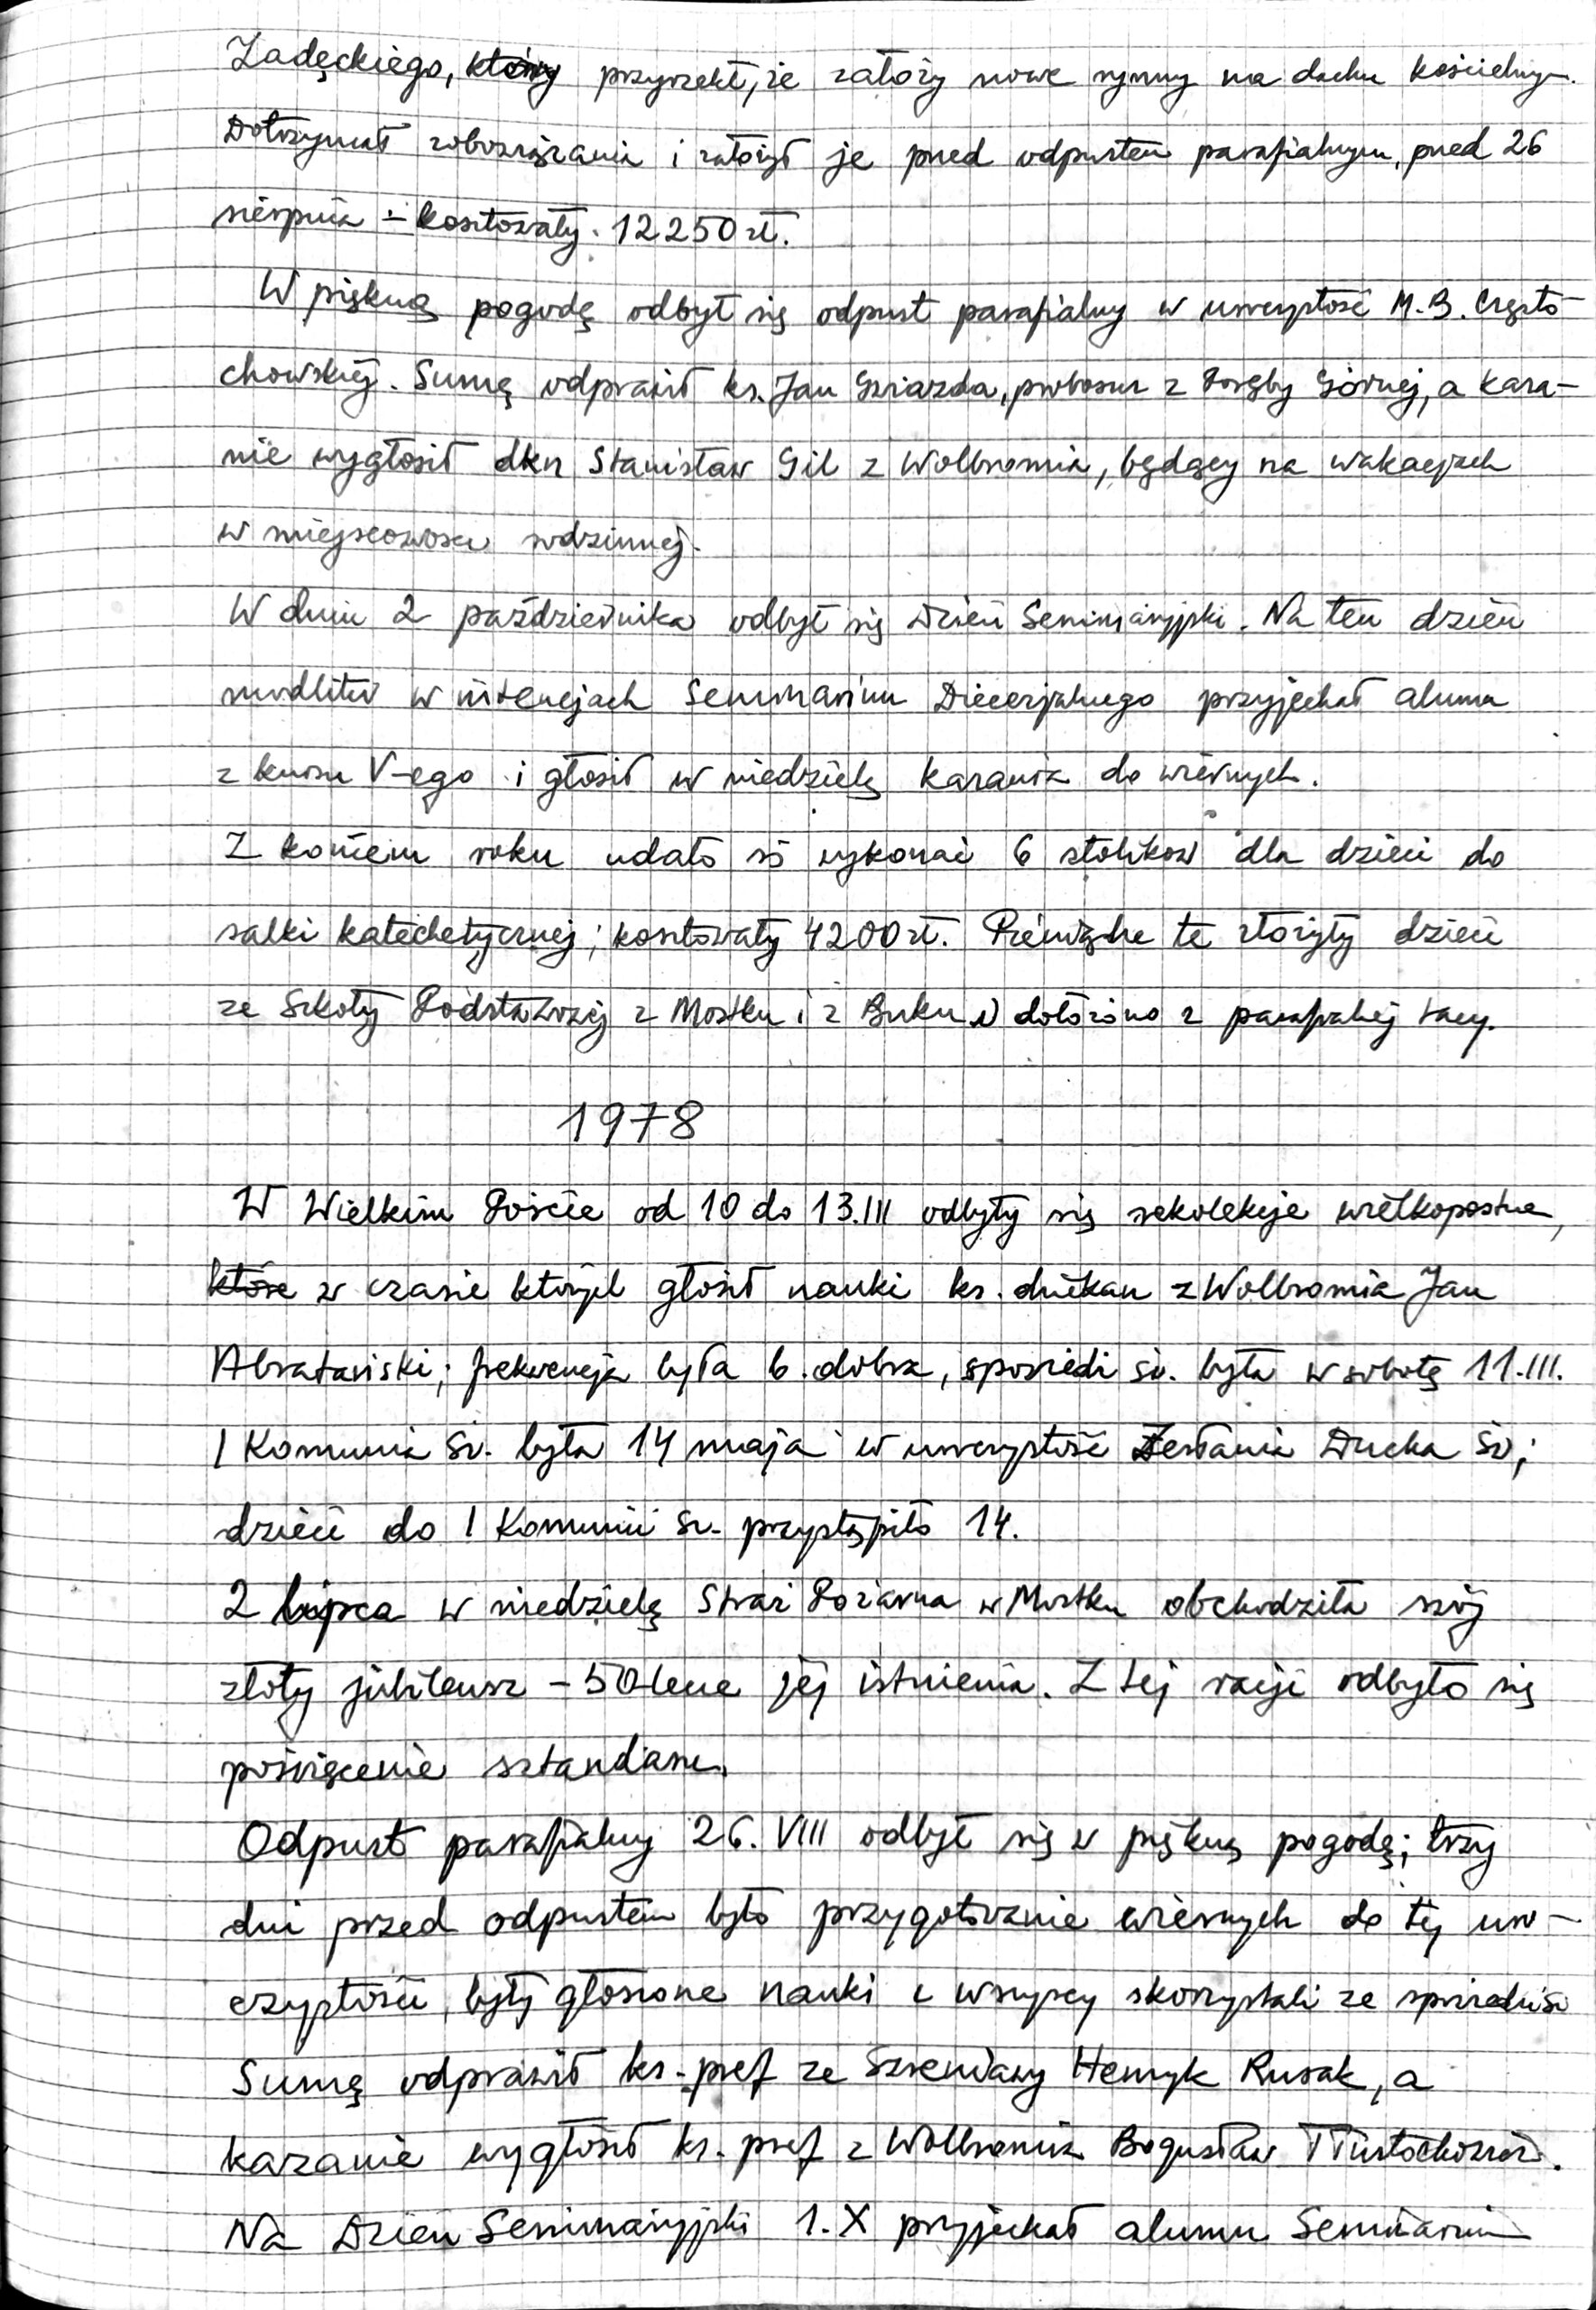 Zadęckiego, który przyrzekł, że założy nowe rynny na dachu kościelnym.
Dotrzymał zobowiązania i założył je przed odpustem parafialnym, przed 26
sierpnia – kosztowały 12250 zł.
W piękną pogodę odbył się odpust parafialny w uroczystość M.B. Często-
chowskiej. Sumę odprawił ks. Jan Gwiazda, proboszcz z Poręby Górnej, a kaza-
nie wygłosił dkn Stanisław Gil z Wolbromia, będący na wakacjach
w miejscowości rodzinnej.
W dniu 2 października odbył się Dzień Seminaryjski. Na ten dzień
modlitw w intencjach Seminarium Diecezjalnego przyjechał alumn
z kursu V-ego i głosił w niedzielę kazania do wiernych.
Z końcem roku udało się wykonać 6 stolików dla dzieci do
salki katechetycznej; kosztowały 4200 zł. Pieniądze te złożyły dzieci
ze Szkoły Podstawowej z Mostku i z Buku i dołożono z parafialnej tacy.
1978
W Wielkim Poście od 10 do 13.III odbyły się rekolekcje wielkopostne,
które w czasie których głosił nauki ks. dziekan z Wolbromia Jan
Abratański; frekwencja była b. dobra, spowiedź św. była w sobotę 11.III.
I Komunia św. była 14 maja w uroczystość Zesłania Ducha św;
dzieci do I Komunii św. przystąpiło 14.
2 lipca w niedzielę Straż Pożarna w Mostku obchodziła swój
złoty jubileusz – 50lecie jej istnienia. Z tej racji odbyło się
poświęcenie sztandaru.
Odpust parafialny 26.VIII odbył się w piękną pogodę; trzy
dni przed odpustem było przygotowanie wiernych do tej uro-
czystości, były głoszone nauki i wszyscy skorzystali ze spowiedzi św
Sumę odprawił ks. pref ze Szreniawy Henryk Rusak, a
kazanie wygłosił ks. pref z Wolbromia Bogusław
Na Dzień Seminaryjski 1.X przyjechał alumn Seminarium